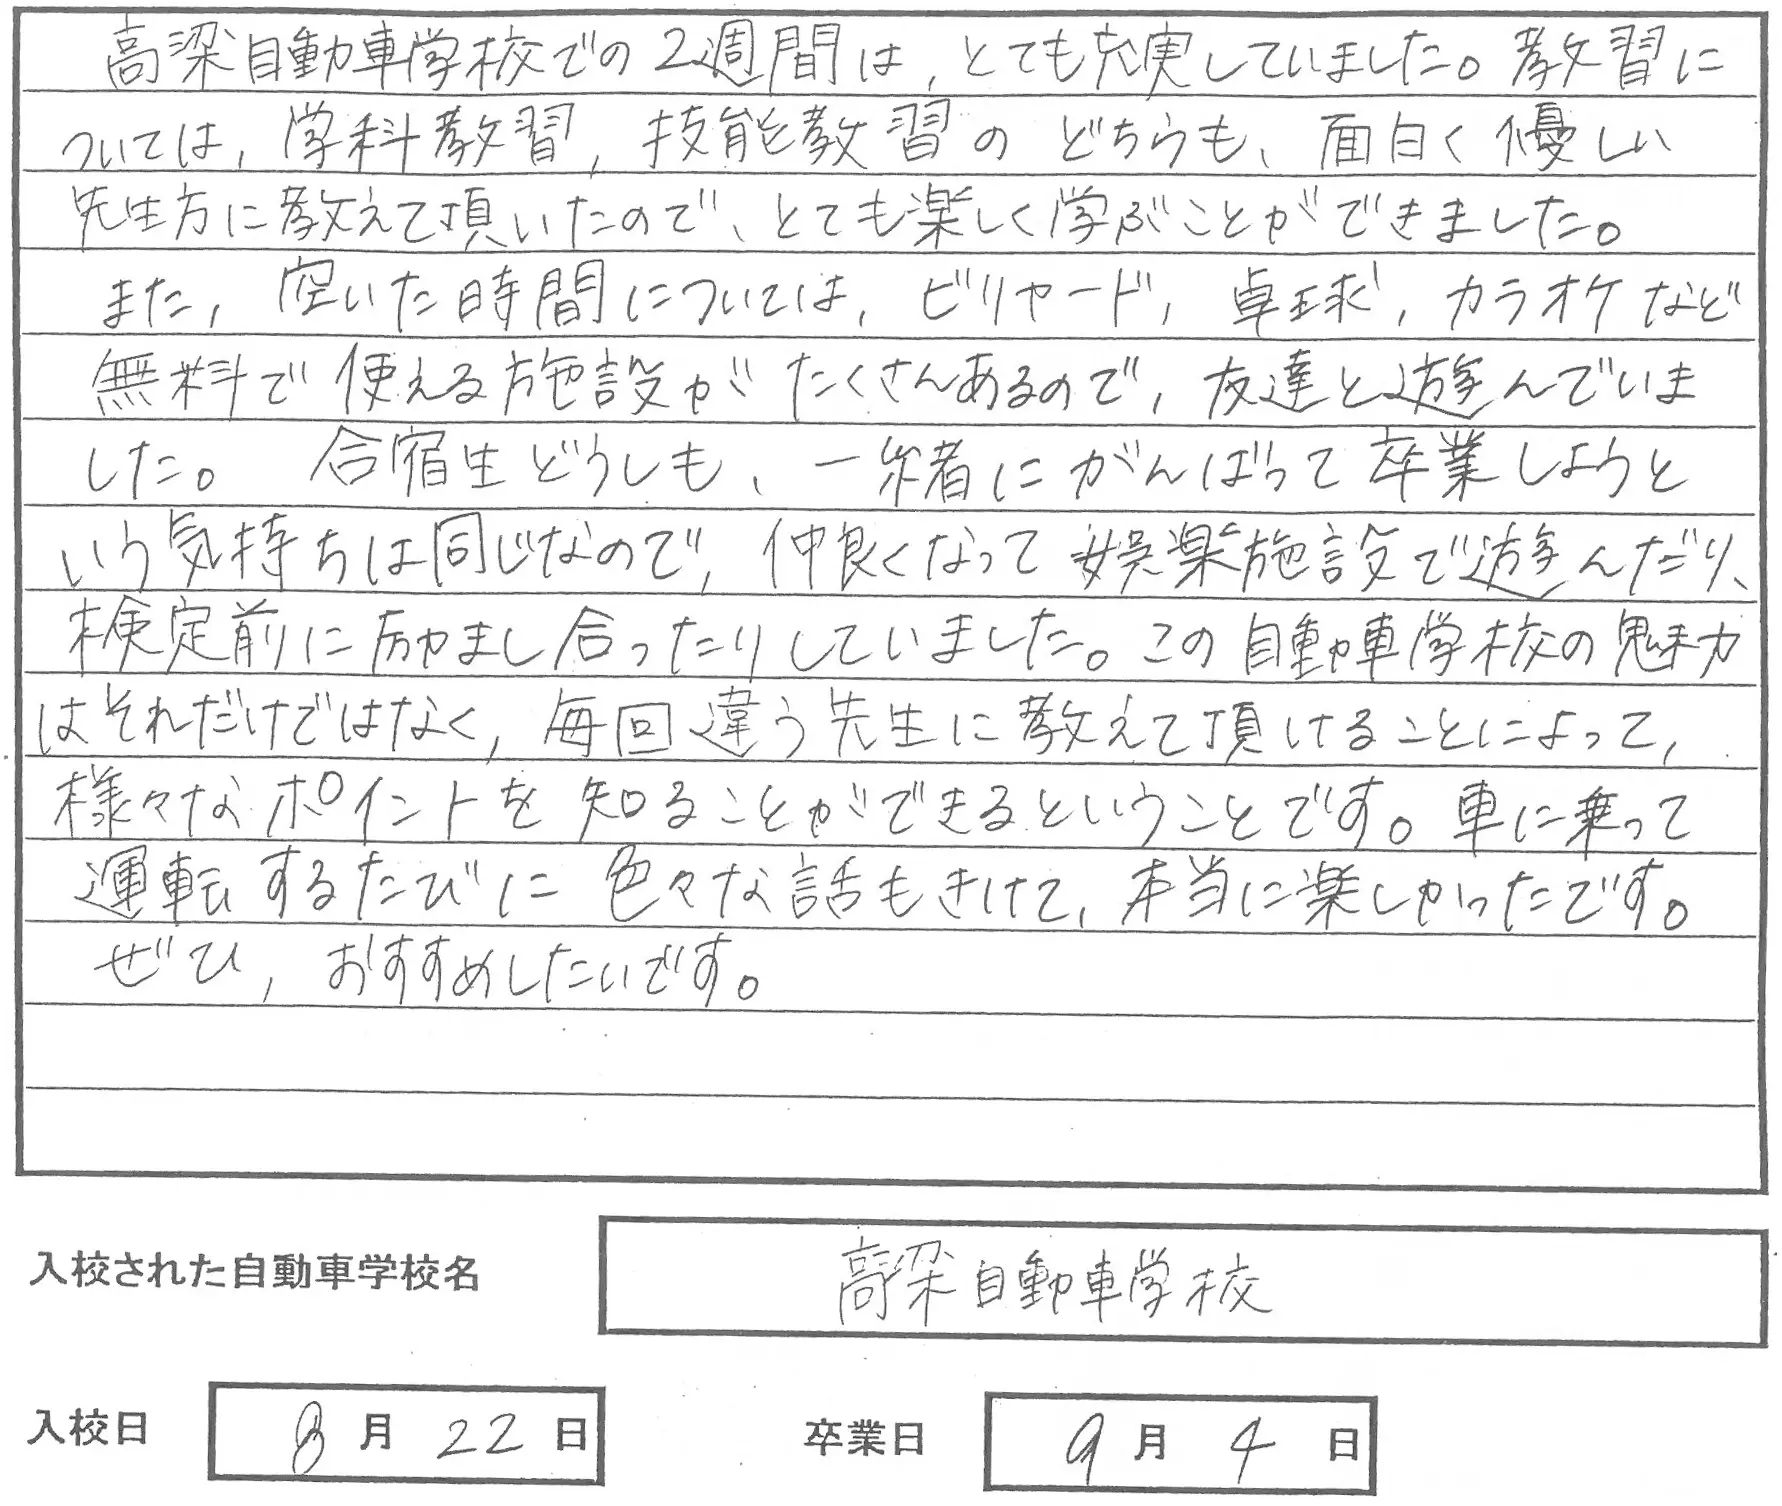 高梁自動車学校での2週間は，とても充実していました。教習に
ついては，学科教習，技能教習のどちらも、面白く優しい
先生方に教えて頂いたので、とても楽しく学ぶことができました。
また，空いた時間については，ビリヤード，卓球，カラオケなど
無料で使える施設がたくさんあるので，友達と遊んでいま
した。 合宿生どうしも、一緒にがんばって卒業しようと
いう気持ちは同じなので，仲良くなって娯楽施設で遊んだり、
検定前に励まし合ったりしていました。この自動車学校の魅力
はそれだけではなく，毎回違う先生に教えて頂けることによって，
様々なポイントを知ることができるということです。車に乗って
運転するたびに色々な話もきけて，本当に楽しかったです。
ぜひ，おすすめしたいです。
入校された自動車学校名 高梁自動車学校
入校日 8月22日 卒業日 9月4日